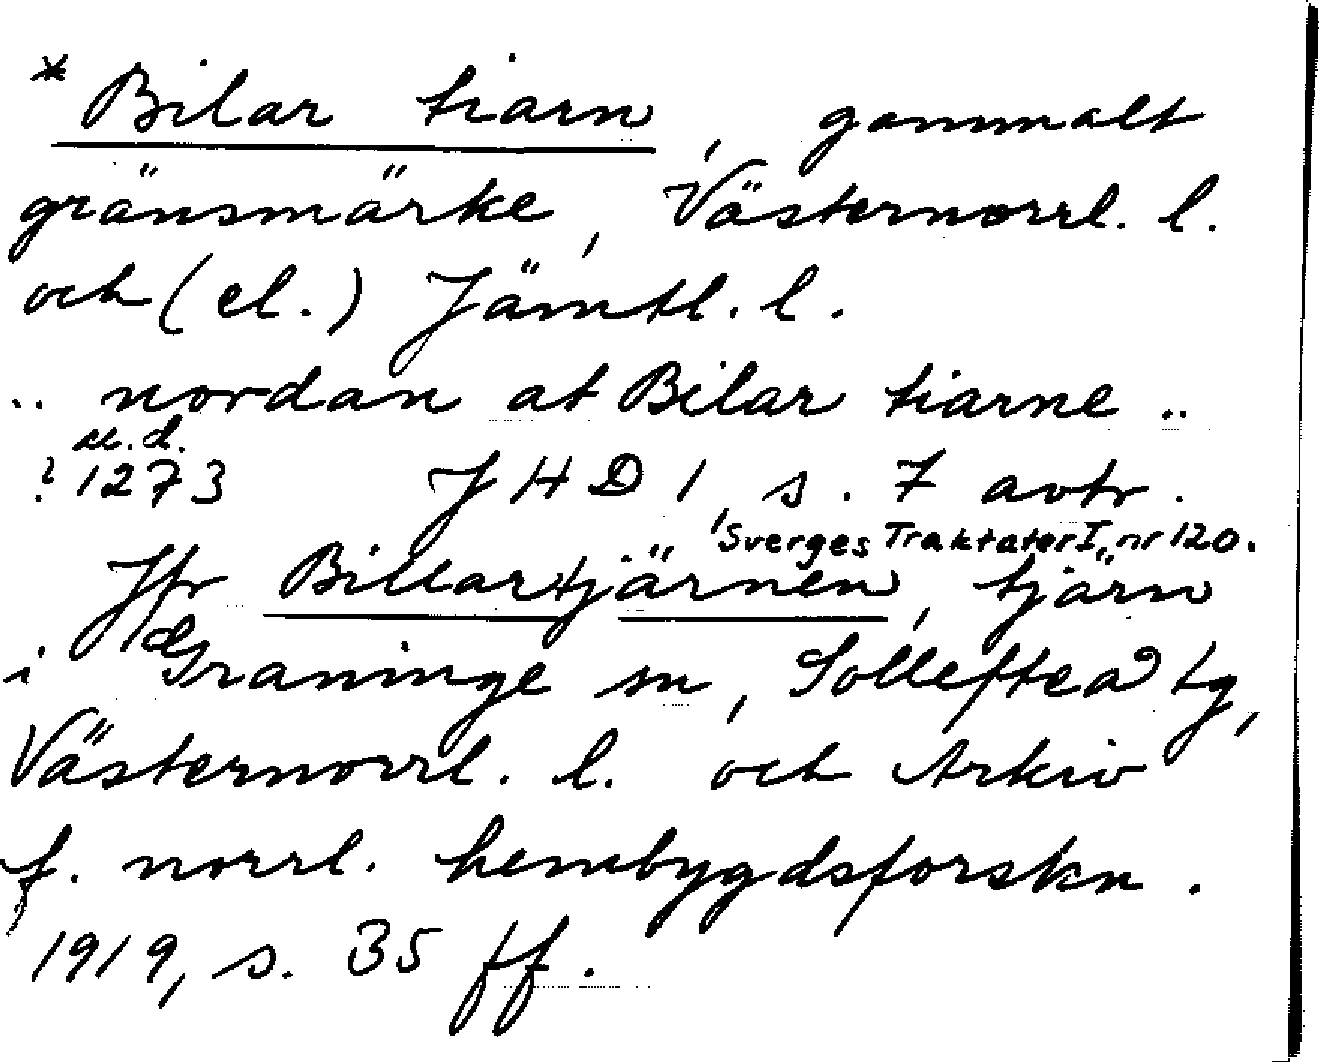 * Bilar tiarn, gammalt
gränsmärke, Västernorrl. l.
och (el.) Jämtl. l.
.. nordan at Bilar tiarne ..
u.d.
? 1273 JHD 1, s. 7 avtr.
Sverges Traktater I, nr 120.
Jfr Billartjärnen, tjärn
i Graninge sn, Sollefteå tg,
Västernorrl. l. och Arkiv
f. norrl. hembygdsforskn.
1919, s. 35 ff.